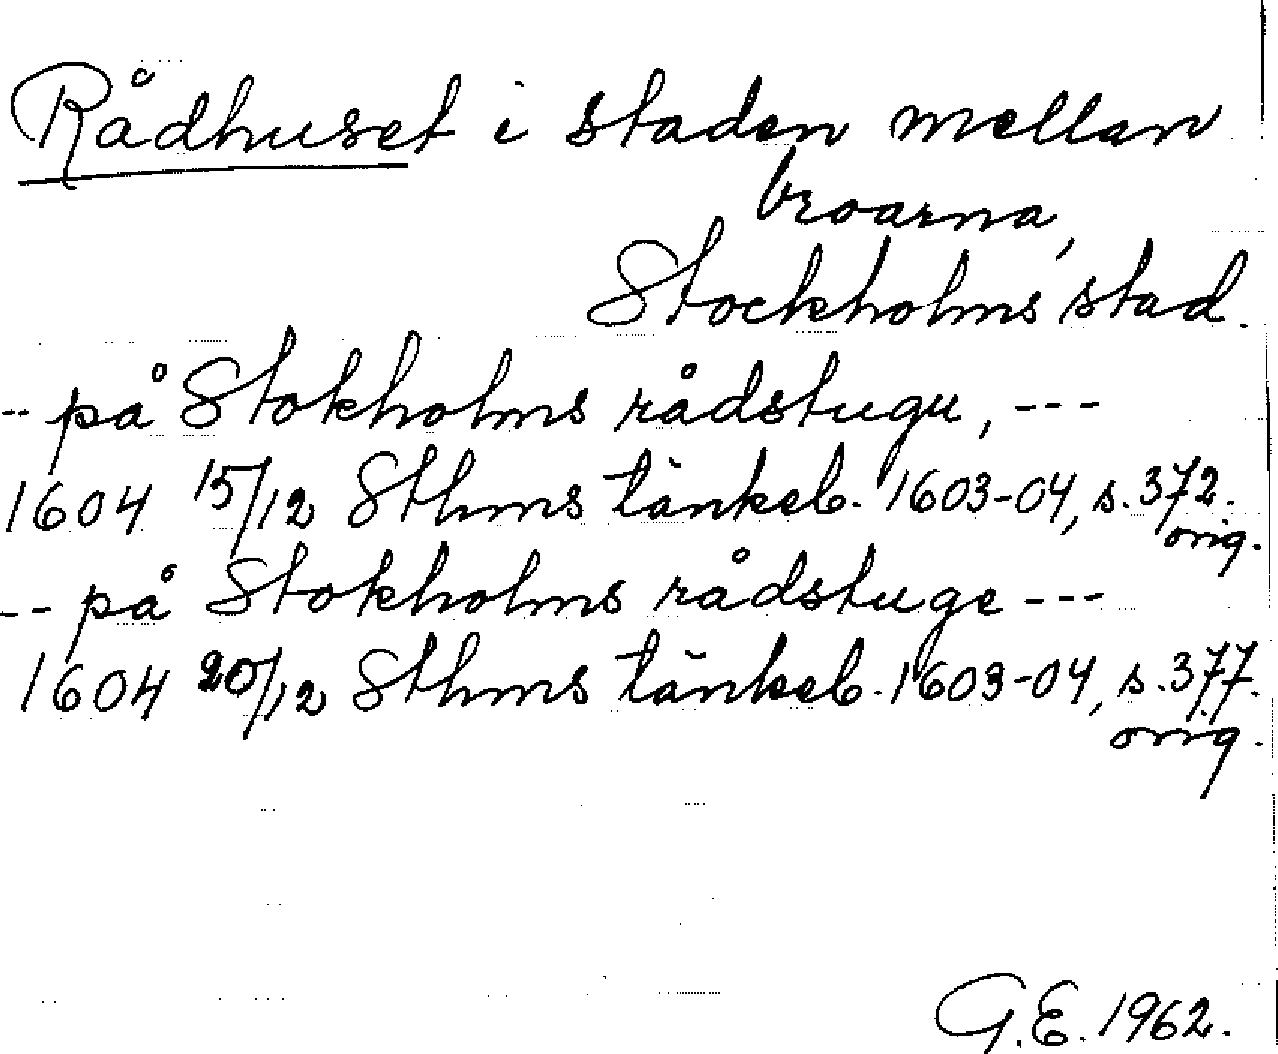 Rådhuset i staden mellan
broarna,
Stockholms stad.
-- på Stokholms rådstugu, ---
1604 15/12 Sthms tänkeb. 1603-04, s. 372.
orig.
-- på Stokholms rådstuge ---
1604 20/12 Sthms tänkeb. 1603-04, s. 377.
orig.
G.E. 1962.